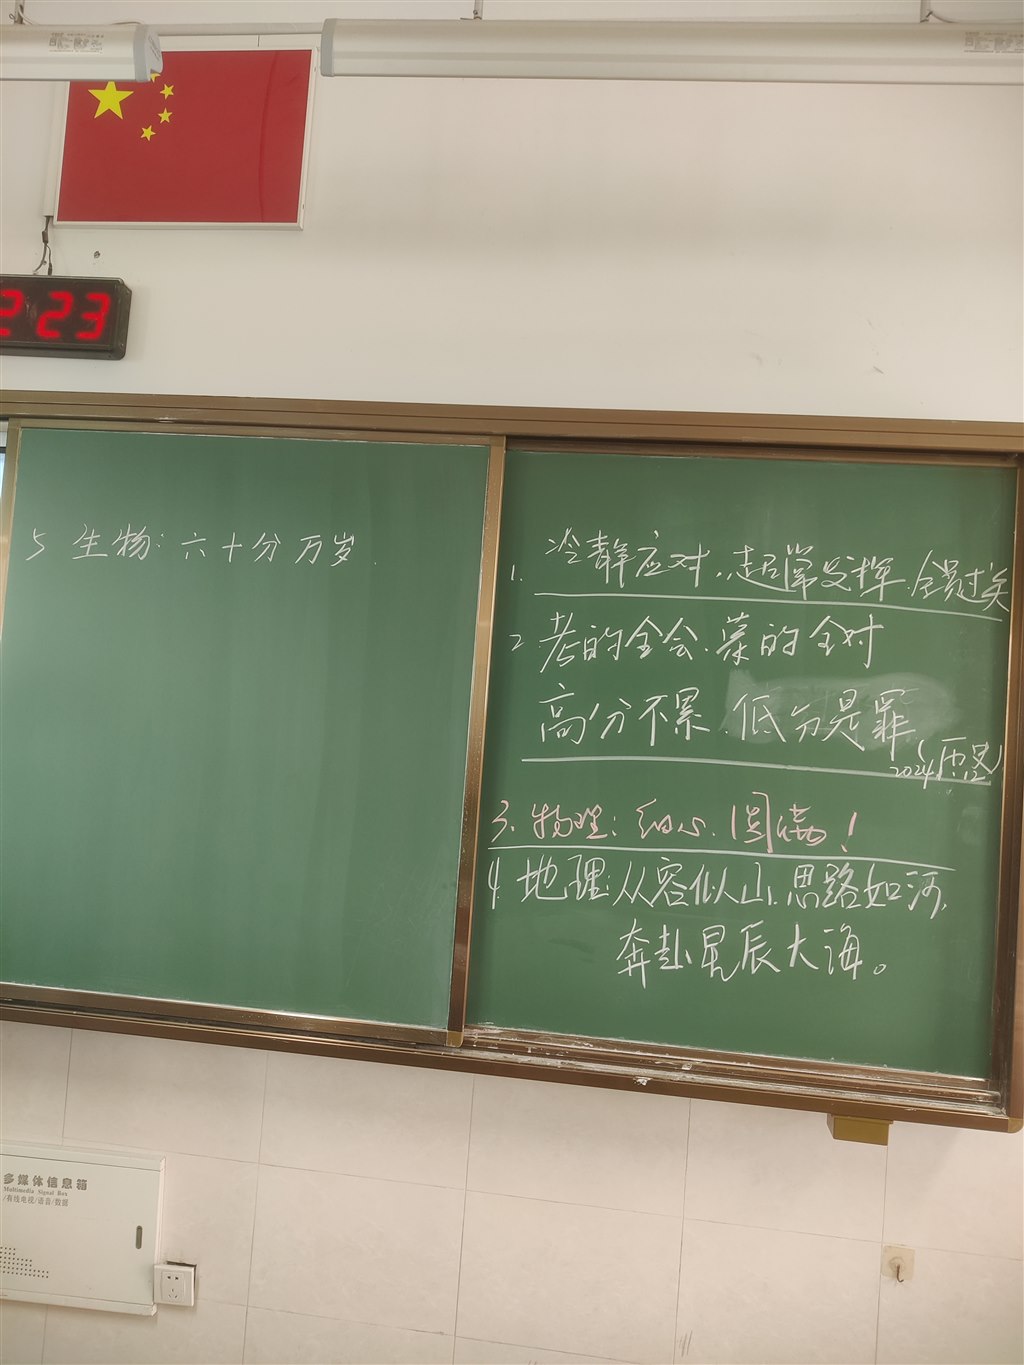 223
5 生物：六十分万岁.
1. 冷静应对，超常发挥.全员过关
2 考的全会.蒙的全对
高分不累.低分是罪
3. 物理：细心.圆满！
4. 地理：从容似山.思路如河,
奔赴星辰大海。
多媒体信息箱
Multimedia Signal Box
/有线电视/语音/数据